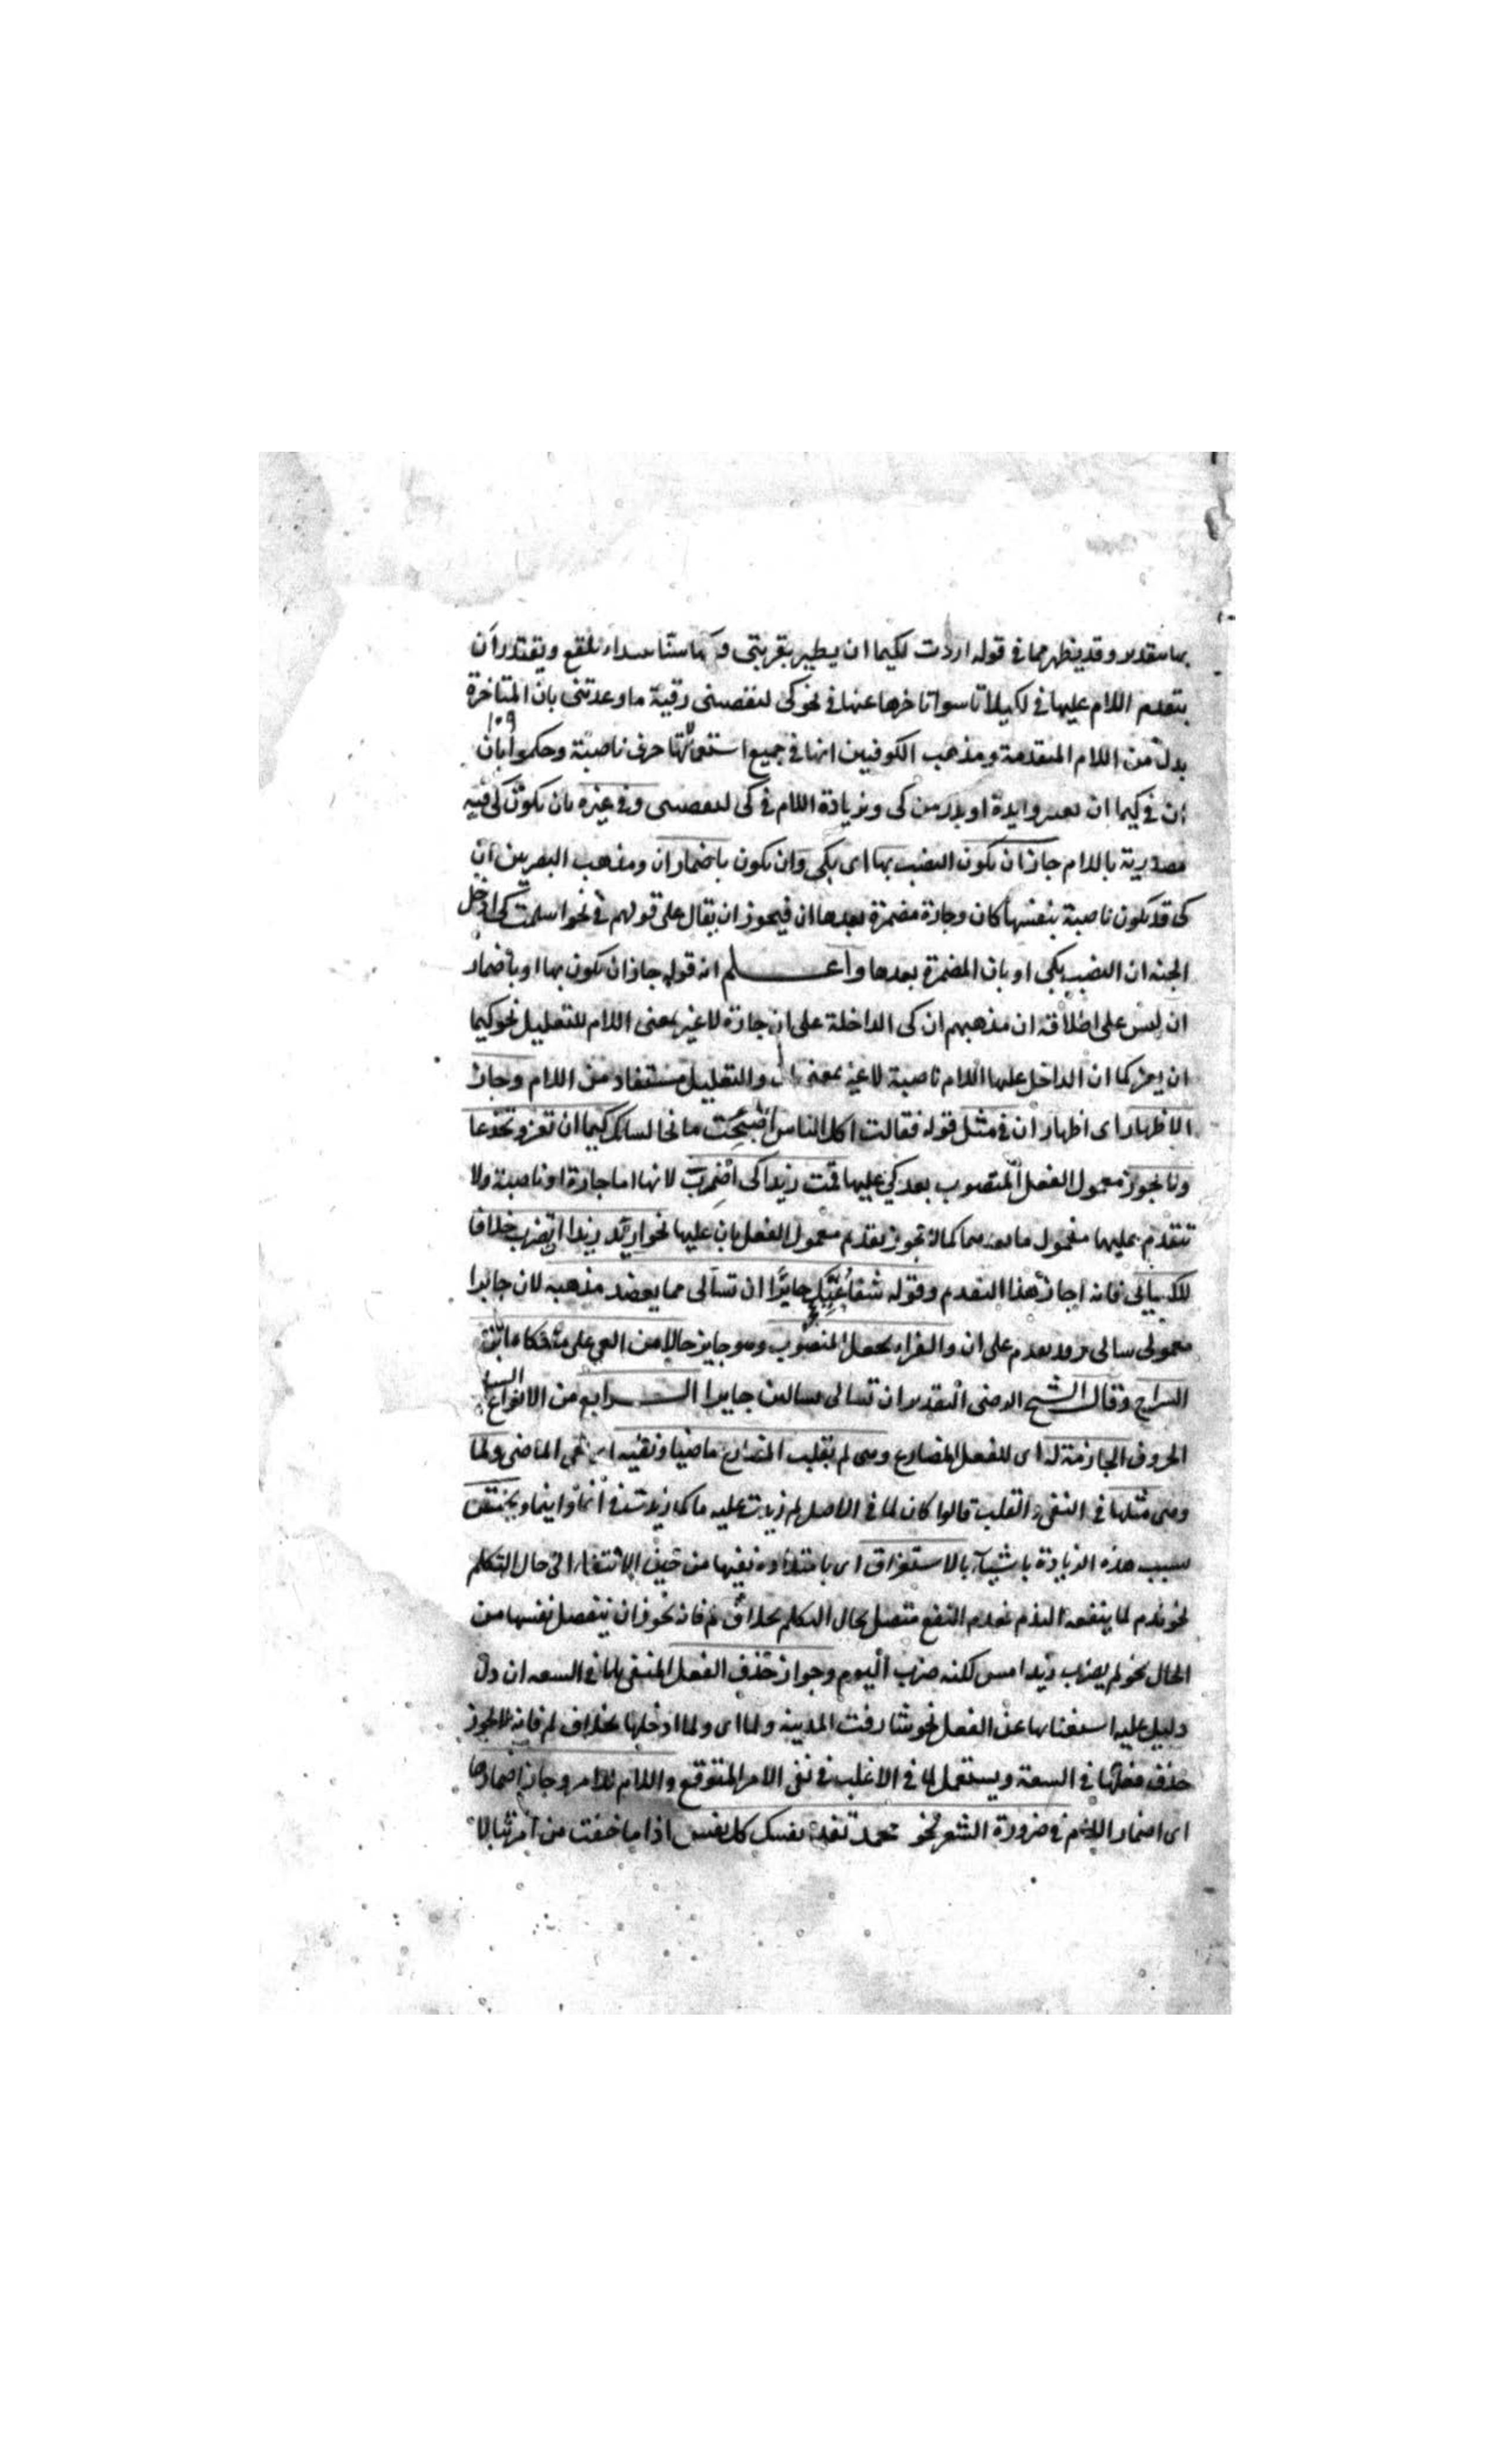 وقد يظهر مما في قوله اردت لكيما ان يطير بقربتي بلقع ويعتذر ان
بتقدم اللام عليها في لكيلا تاسوا تاخرها عنها في نحو كي لتقضيني رقية ما وعدتني بان المتاخرة
١٥٩
بدل من اللام المتقدمة ومذهب الكوفيين انها في جميع استعمالاتها حرف ناصبة وحكموا بان
ان في كيما ان او بدل من كي وزيادة اللام في كي وفي غيره بان تكون كي فيه
مصدرية باللام جاز ان تكون النصب بها اى بكي وان تكون باضمار ان ومذهب البصريين ان
كي قد تكون ناصبة بنفسها كان وجارة مضمرة بعدها ان فيجوز ان يقال على قولهم في نحو اسلمت كي ادخل
الجنة ان النصب بكي او بان المضمرة بعدها واعلم ان قوله جاز ان تكون بها او باضمار
ان ليس على اطلاقه ان مذهبهم ان كي الداخلة على ان جارة لا غير بمعنى اللام للتعليل نحو كيما
ان كما ان الداخل عليها اللام ناصبة لا غير بمعنى ان والتعليل مستفاد من اللام وجاز
الاظهار اى اظهار ان في مثل قوله فقالت اكل الناس اصبحت مانحا لسانك كيما ان تغر وتخدعا
معمول الفعل المنصوب بعد كي عليها قمت زيدا كي اضرب لانها اما جارة او ناصبة ولا
تتقدم عليها معمول ما بعدهما كما لا تجوز تقدم معمول الفعل بان عليها نحو اريد زيدا ان تضرب خلافا
للكسائي فانه اجاز هذا التقدم وقوله شفا جايرا ان تسالى مما يعضد مذهبه لان جايرا
معمول على ان والفراء يجعل المنصوب وهو جايز حالا من
السراج وقال الشيخ الرضي التقدير ان تسالى تسالين جايرا الرابع من الانواع
الحروف الجازمة له اى للفعل المضارع وهى لم لقلب المضارع ماضيا ونفيه اى نفي الماضى ولما
وهى مثلها في النفي والقلب قالوا كان لما في الاصل لم زيدت عليه ما كما زيدت في انما واينما ويختص
بسبب هذه الزيادة باشياء بالاستغراق اى بامتداد نفيها من حين الانتفاء الى حال التكلم
نحو ندم لما ينفعه الندم فعدم النفع متصل بحال التكلم بخلاف لم فانه نحو ان ينفصل نفيها من
الحال نحو لم يضرب زيد امس لكنه ضرب اليوم وجواز حذف الفعل المنفي بلما في السعه ان دل
دليل عليه استغنا بها عن الفعل نحو شارفت المدينه ولما اى ولما ادخلها بخلاف لم فانه لا يجوز
حذف فعلها في السعة ويستعمل لما في الاغلب في نفي الامر المتوقع واللام للامر وجاز اضمارها
اى اضمار اللام في ضرورة الشعر نحو محمد تفد نفسك كل نفس اذا ما خفت من امر تبالا